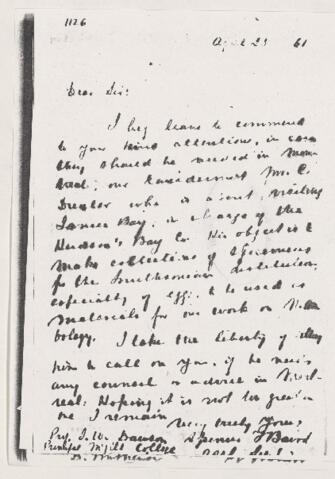 1126
April 23 61
Dear Sir:
I beg leave to commend
to your kind attentions, in case
they should be needed in Mon
treal; our Taxidermist Mr. C.
Drexler who is about visiting
James Bay, in charge of the
Hudson's Bay Co. His object is to
make collections of specimens
for the Smithsonian Institution,
especially of eggs, to be used as
materials for our work on
ology. I take the liberty of
him to call on you, if he needs
any counsel or advice in Mont-
real: Hoping it is not too great
I remain
Very truly yours
Prof. J. W. Dawson Spencer F Baird
Principal McGill College